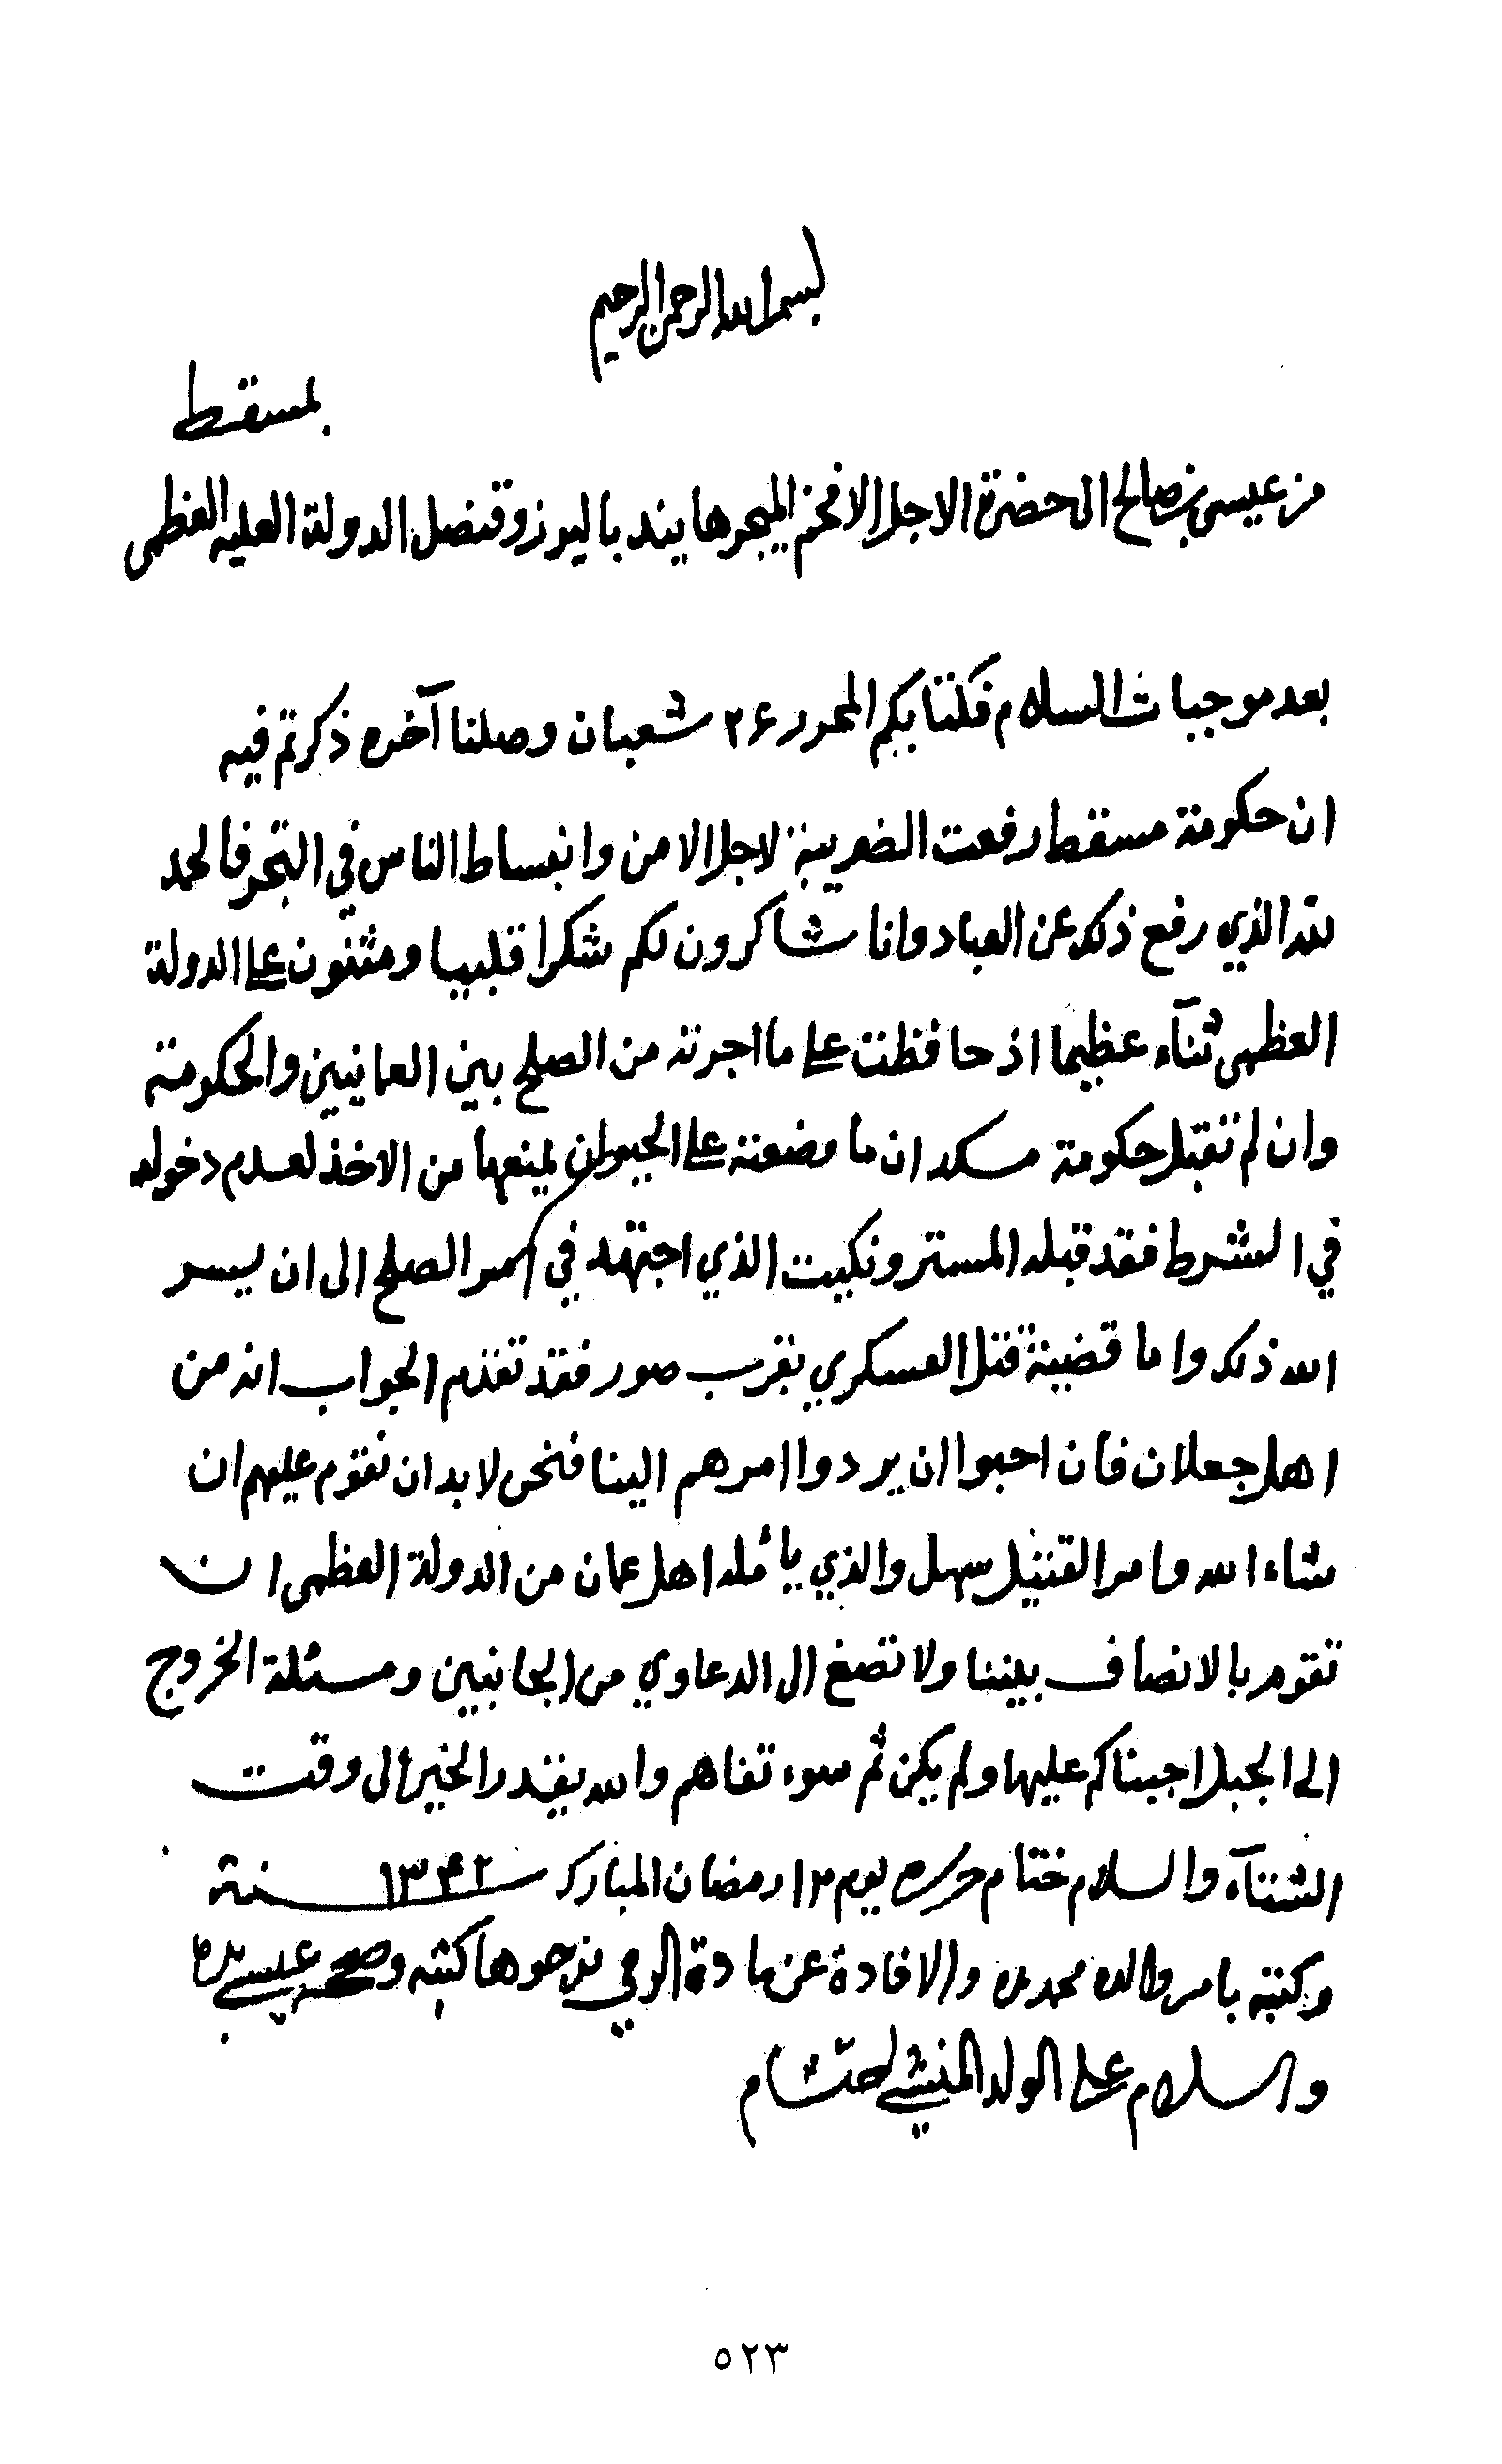 بسم الله الرحمن الرحيم
بمسقط
من عيسى بن صالح الى حضرة الاجل الافخم الميجر هايند باليوز وقنصل الدولة العليه العظمى
بعد موجبات السلام فكتابكم المحرر ٢۶ شعبان وصلنا آخره ذكرتم فيه
ان حكومة مسقط رفعت الضريبة لاجل الامن وانبساط الناس في التجر فالحمد
لله الذي رفع ذلك عن العباد وانا شاكرون لكم شكرا قلبيا ومثنون على الدولة
العظمى ثنآء عظيما اذ حافظت على ما اجرته من الصلح بين العمانيين والحكومة
وان لم تقبل حكومة مسكد ان ما وضعته على الحيوان يمنعها من الاخذ لعدم دخوله
في الشرط فقد قبله المستر ونكيت الذي اجتهد في امر الصلح الى ان يسر
الله ذلك واما قضية قتل العسكري بقرب صور فقد تقدم الجواب انه من
اهل جعلان فان احبوا ان يردوا امرهم الينا فنحن لا بد ان نقوم عليهم ان
شاء الله وامر القتيل سهل والذي يأمله اهل عمان من الدولة العظمى ان
تقوم بالانصاف بيننا ولا تصغ الى الدعاوي من الجانبين ومسئلة الخروج
الى الجبل اجبناكم عليها ولم يكن ثم سوء تفاهم والله يقدر الخير الى وقت
الشتآء والسلام ختام حرر يوم ١٢ رمضان المبارك ١٣۴٢ سنة
وكتبه بامر والده محمد والافادة عن مادة نرجوها كتبه وصح عيسى بيده
والسلام على الولد المنشي احتشام
٥٢٣